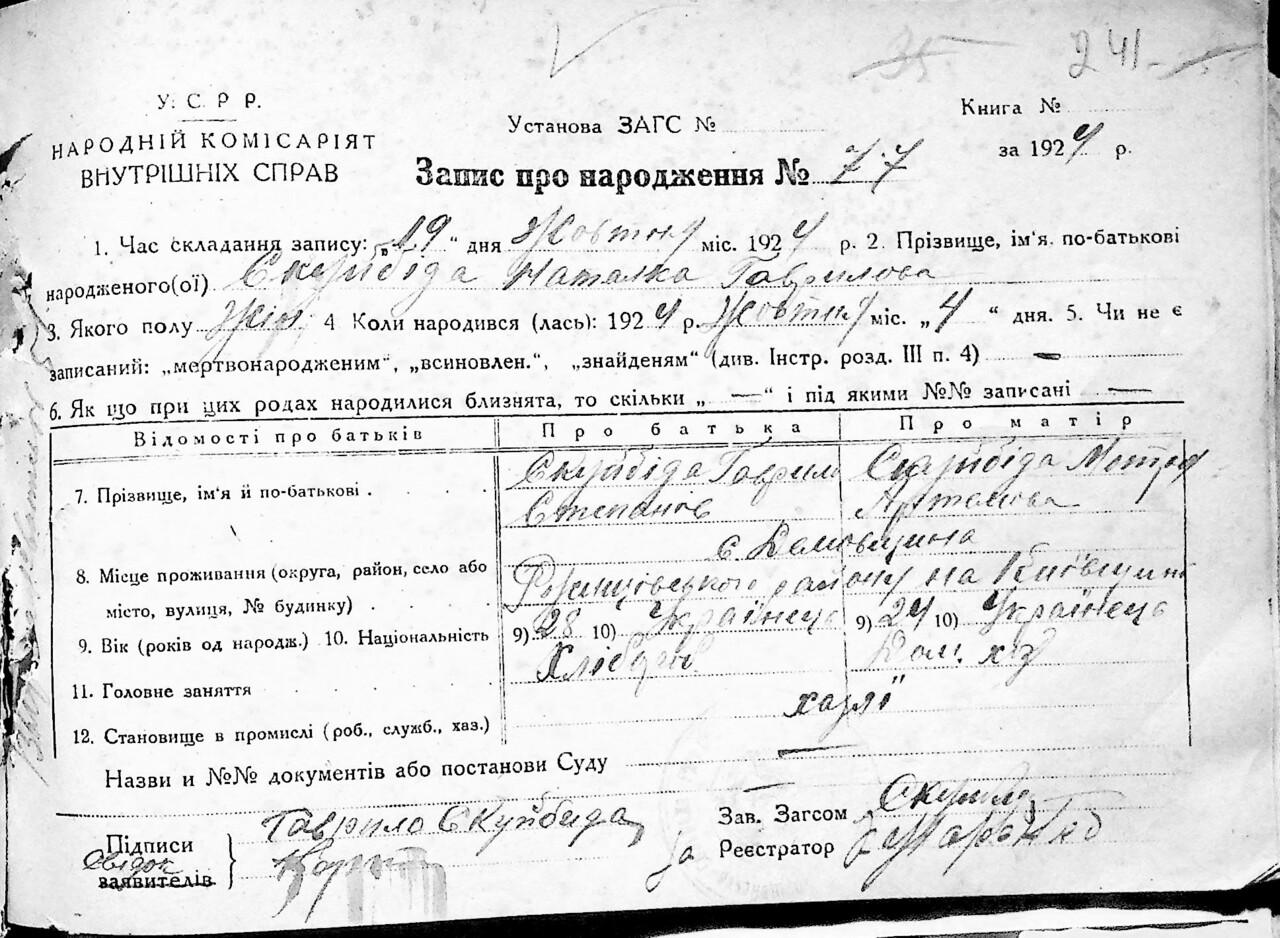 241
У. С. Р Р.
НАРОДНІЙ КОМІСАРІЯТ
ВНУТРІШНІХ СПРАВ
Установа ЗАГС №
Книга №
за 1924 р.
Запис про народження № 77
1. Час складання запису: „19“ дня Жовтня міс. 1924 р. 2. Прізвище, ім'я, по-батькові
народженого(ої) Скуйбіда Наталка Гаврилова
3. Якого полу Жін. 4 Коли народився (лась): 1924 р. Жовтня міс. „4“ дня. 5. Чи не є
записаний: „мертвонародженим“, „всиновлен.“, „знайденям“ (див. Інстр. розд. III п. 4) —
6. Як що при цих родах народилися близнята, то скільки „ — “ і під якими №№ записані —
Відомості про батьків Про батька Про матір
7. Прізвище, ім'я й по-батькові . . . Скуйбіда Гаврил Степанів Скуйбіда Мотря Артемова
8. Місце проживання (округа, район, село або
місто, вулиця, № будинку) . . . с. Демовщина
району на Київщині
9. Вік (років од народж.) 10. Національність 9) 28 10) Українець 9) 24 10) Українець
11. Головне заняття . . . . Хлібороб Дом. х-в
12. Становище в промислі (роб., служб., хаз.) хазяї
Назви и №№ документів або постанови Суду —
Підписи
Свідок
заявителів
Гаврило Скуйбида
Зав. Загсом
за Реєстратор